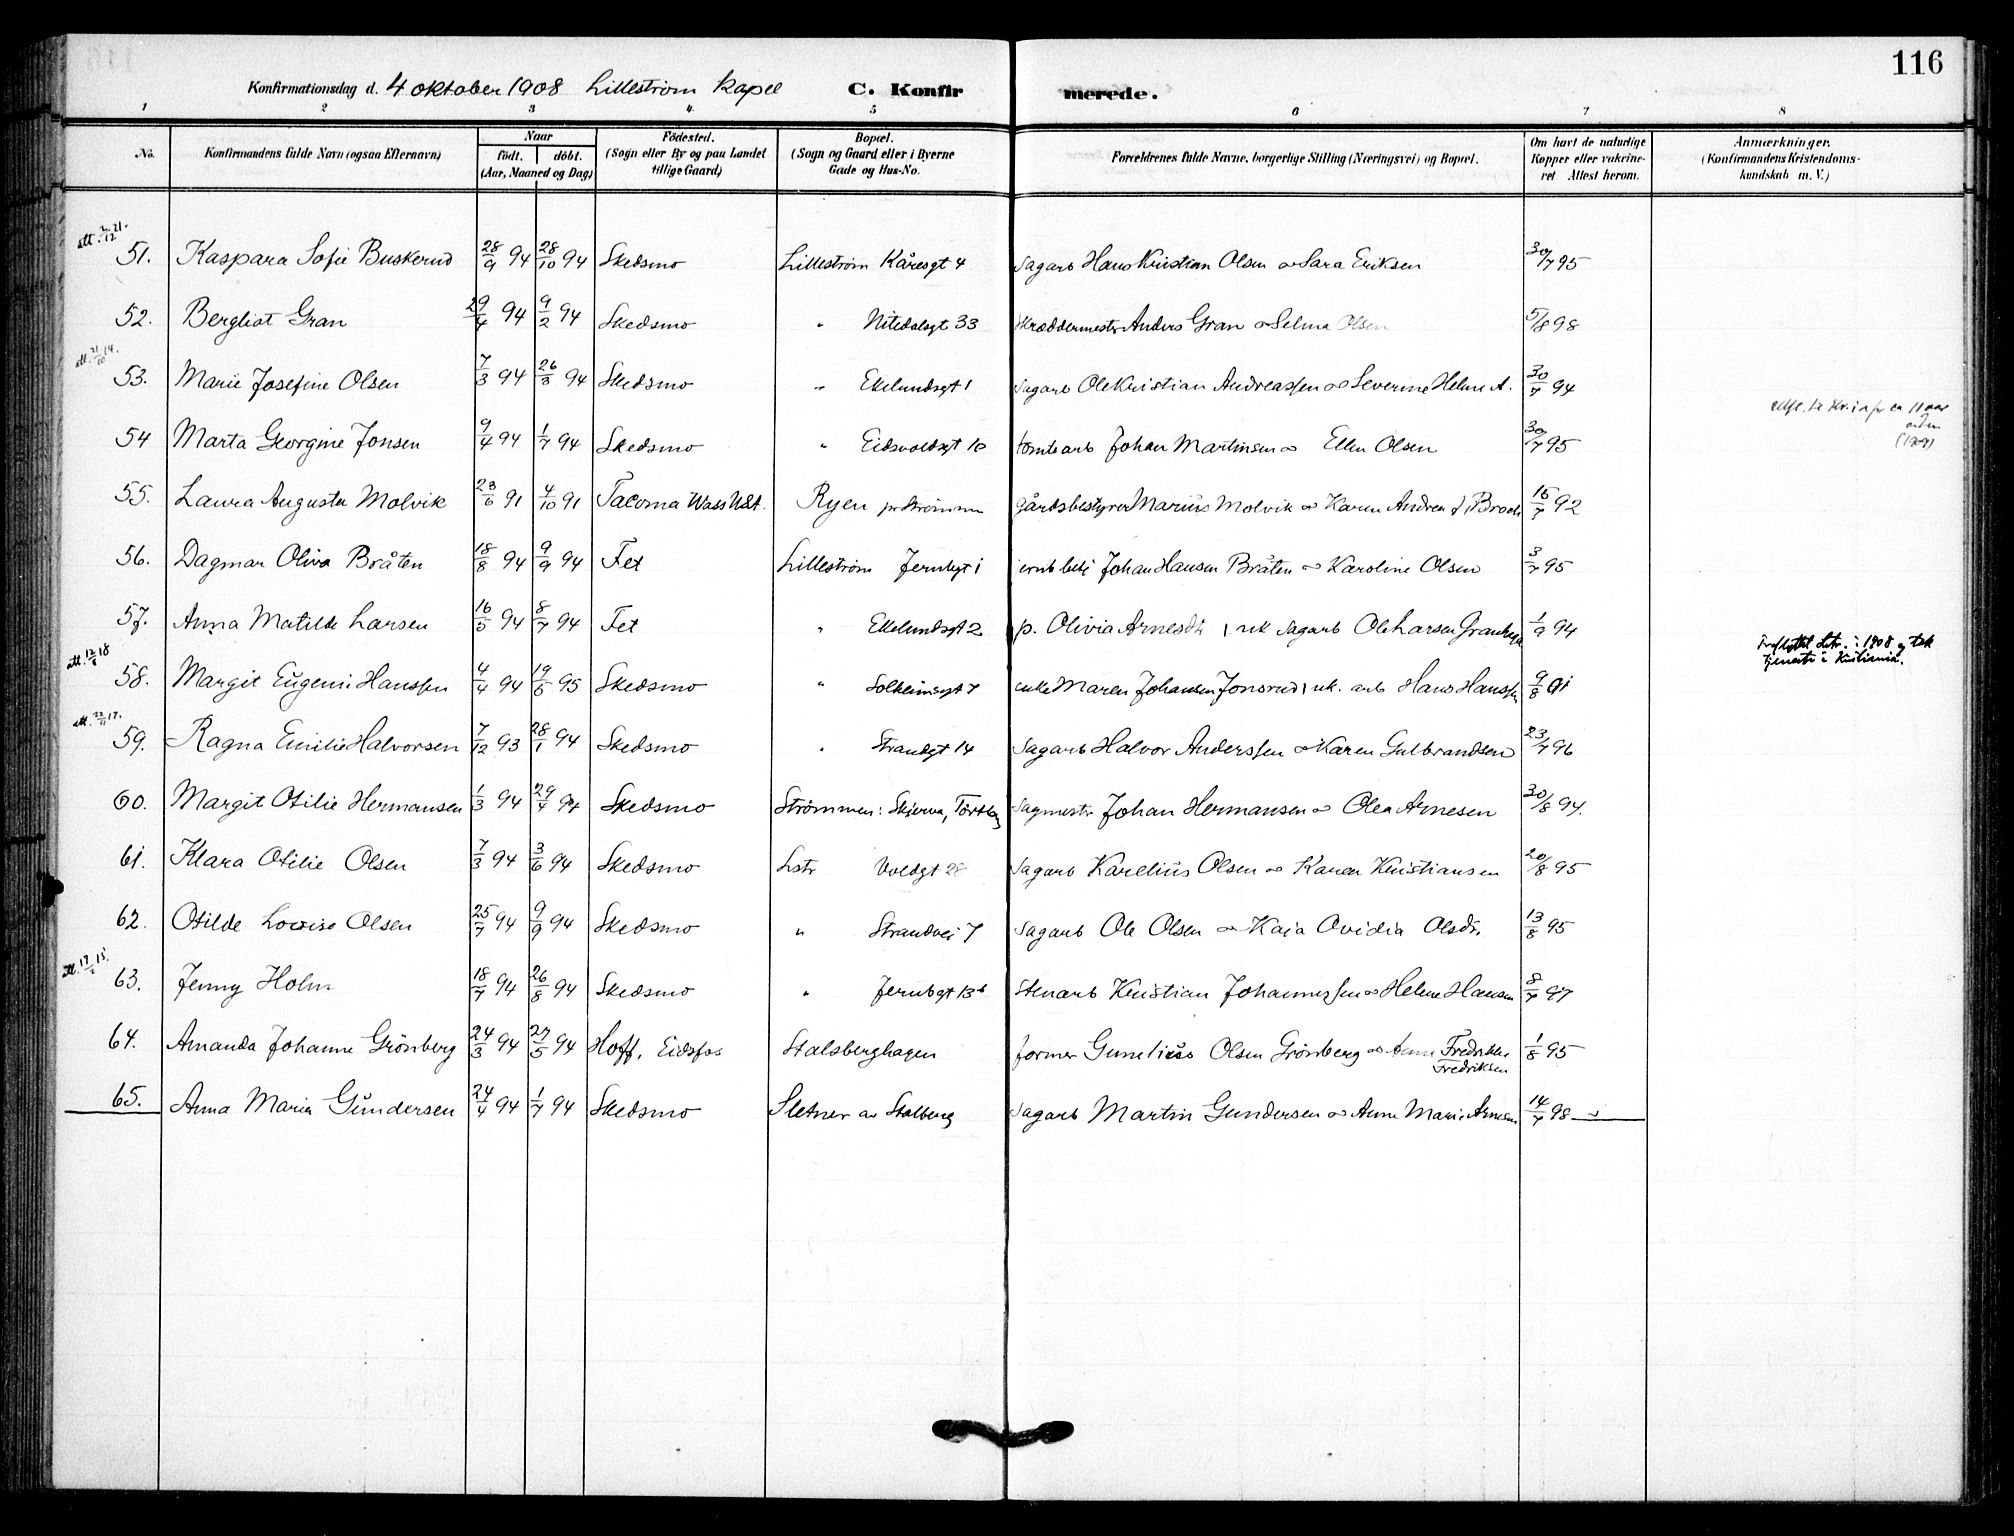 116
Konfirmationsdag d. 4 oktober 1908 Lilleström Kapel C. Konfirmerede.
1 2 3 4 5 6 7 8
No. Konfirmandens fulde Navn (ogsaa Efternavn) Naar født. døbt. (Aar, Maaned og Dag) Födested. (Sogn eller By og paa Landet tillige Gaard) Bopæl. (Sogn og Gaard eller i Byerne Gade og Hus-No. Forældrenes fulde Navne, borgerlige Stilling (Næringsvei) og Bopæl. Om havt de naturlige Kopper eller vakcineret Attest herom. Anmærkninger. (Konfirmandens Kristendomskundskab m. V.)
51. Kaspara Sofie Buskerud 28/9 94 28/10 94 Skedsmo Lilleström Kåresgt 4 Sagarb Hans Kristian Olsen & Sara Eriksen 30/7 95
52. Bergliot Gran 29/4 94 9/2 94 Skedsmo " Nitedalsgt 33 Skræddermestr Anders Gran & Selma Olsen 5/8 98
att. 21/10 14.
53. Marie Josefine Olsen 7/3 94 26/3 94 Skedsmo " Ekelundsgt 1 Sagarb Ole Kristian Andreassen & Severine Helene A. 30/7 94
54 Marta Georgine Jonsen 9/4 94 1/7 94 Skedsmo " Eidsvoldsgt 10 tomtearb Johan Martinsen & Ellen Olsen 30/7 95
(1909)
55. Laura Augusta Molvik 23/6 91 4/10 91 Tacoma Wass USt. Ryen pr Strömmen gårdsbestyrer Marius Molvik & Karen Andrea f. Broch 15/7 92
56. Dagmar Oliva Bråten 18/8 94 9/9 94 Fet Lilleström Jernbgt 1 jernb betj Johan Hansen Bråten & Karoline Olsen 3/7 95
57. Anna Matilde Larsen 16/5 94 8/7 94 Fet " Ekelundsgt 2 p. Olivia Arnesdtr Sagarb Ole Larsen 1/9 94
att. 12/6 18
58. Margit Eugenie Hanssen 4/4 94 19/5 95 Skedsmo " Solheimsgt 7 enke Maren Johansen Jonsrud, arb Hans Hanssen 9/8 01
i 1908 og tok tjeneste i Kristiania.
att. 22/11 17.
59. Ragna Emilie Halvorsen 7/12 93 28/1 94 Skedsmo " Strandgt 14 Sagarb Halvor Anderssen & Karen Gulbrandsen 23/7 96
60. Margit Otilie Hermansen 1/3 94 29/4 94 Skedsmo Strömmen: Skjerva, Sagmestr Johan Hermansen & Olea Arnesen 30/8 94.
61. Klara Otilie Olsen 7/3 94 3/6 94 Skedsmo Lstr Voldgt 28 Sagarb Karelius Olsen & Karen Kristiansen 20/8 95
62. Otilde Lovise Olsen 25/7 94 9/9 94 Skedsmo " Strandvei 7 Sagarb Ole Olsen & Kaja Ovidia Olsdr. 13/8 95
63. Jenny Holm 18/7 94 26/8 94 Skedsmo " Jernbgt 13b Stenarb Kristian Johannessen & Helene Hansen 8/7 97
64. Amanda Johanne Grönberg 24/3 94 27/5 94 Hoff, Eidsfos Stalsberghagen former Gunelius Olsen Grönberg & Anne Fredrikke Fredriksen 1/8 95
65. Anna Maria Gundersen 24/4 94 1/7 94 Skedsmo Sletner av Stalberg Sagarb Martin Gundersen & Anne Marie Arnesen 14/7 98